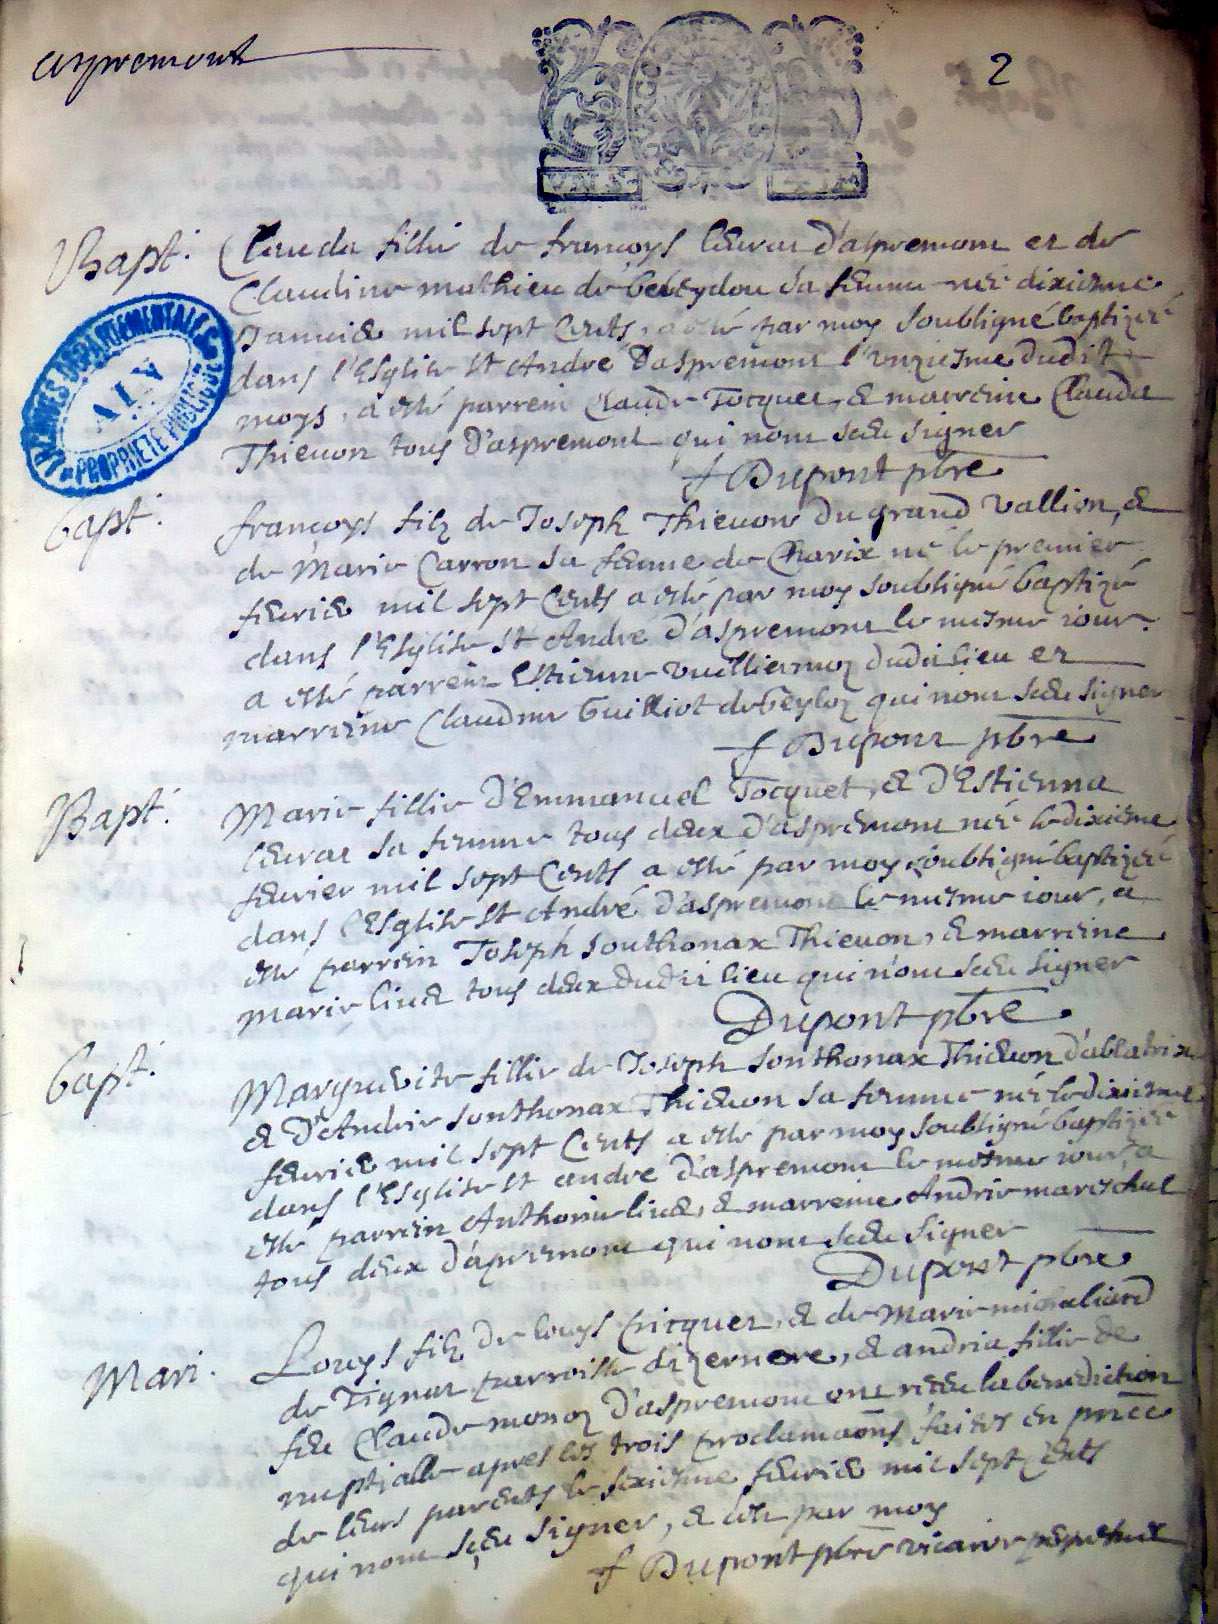 aspremont
2
Bapt.
Clauda fillie de françoys leurat d'aspremont et de
Claudine mathieu de sa femme née dixiesme
Januier mil sept Cents, a esté par moy soubsigné baptizée
dans l'Esglise St André D'aspremont l'unziesme dudit
moys, a esté parrein Claude Tocquet, & marreine Clauda
Thieuon tous D'aspremont qui n'ont sceu signer
f Dupont pbre
ARCHIVES DÉPARTEMENTALES
AIN
PROPRIÉTÉ PUBLIQUE
bapt.
françoys filz de Joseph Thieuon du grand Vallion, &
de Marie Carron sa femme de Charix né le premier
feurier mil sept Cents a esté par moy soubsigné baptizé
dans l'Esglise St André d'aspremont le mesme iour.
a esté parrein Estienne Vuilliermoz dudit lieu et
marreine Claudine Guilliot de qui n'ont sceu signer
f Dupont pbre
Bapt.
Marie fillie d'Emmanuel Tocquet, & d'Estienna
leurat sa femme tous deux d'aspremont née le dixiesme
feurier mil sept Cents a esté par moy soubsigné baptizée
dans l'Esglise St André d'aspremont le mesme iour, a
esté parrein Joseph Sonthonax Thieuon, & marreine
marie liuet tous deux dudit lieu qui n'ont sceu signer
Dupont pbre
bapt.
Marguerite fillie de Joseph Sonthonax Thieuon d'ablatrix
& D'Andrie Sonthonax Thieuon sa femme née le dixiesme
feurier mil sept Cents a esté par moy soubsigné baptizée
dans l'Esglise St andré d'aspremont le mesme iour, a
esté parrein Anthoine liuet, & marreine Andrie mareschal
tous deux d'apremont qui n'ont sceu signer
Dupont pbre
Mari.
Louys filz de louys Cricquet, & de Marie michaliard
de Tignat parroisse dizernore, & andria fillie de
feu Claude monoz D'aspremont ont receu la benediction
nuptialle apres les trois proclamaons faites en pnce
de leurs parents le seziesme feurier mil sept Cents
qui n'ont sceu signer, & ce par moy
f Dupont pbre vicaire perpetuel